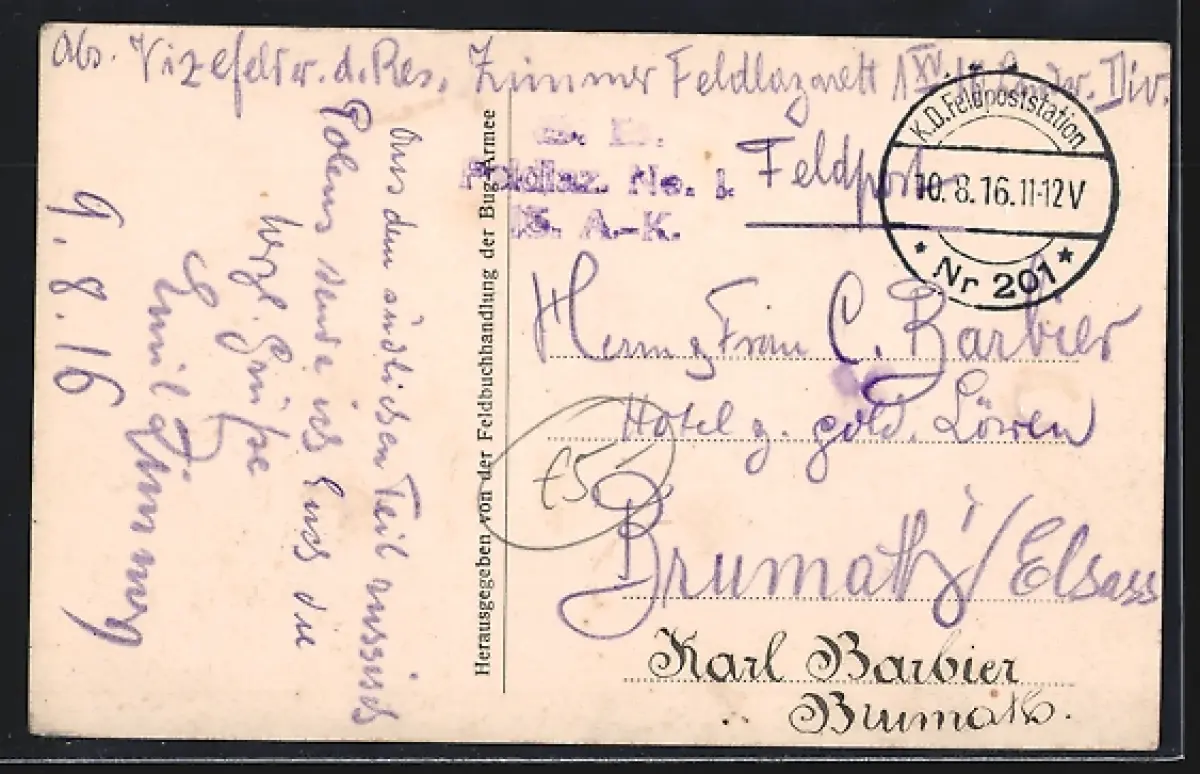 Abs. Vizefeldw. d. Res. Zimmer Feldlazarett 1 XV. Div.
Aus dem südlichen Teil russisch
Polens sende ich Euch die
herzl. Grüße
Emil
9.8.16
Herausgegeben von der Feldbuchhandlung der Bug-Armee
Feldlaz. No. 1.
15. A.-K.
Feldpost
K.D. Feldpoststation
10.8.16.11-12V
* Nr 201 *
Herrn z Frau C. Barbier
Hotel z. gold. Löwen
£5
Brumath i/Elsass
Karl Barbier
Brumath.